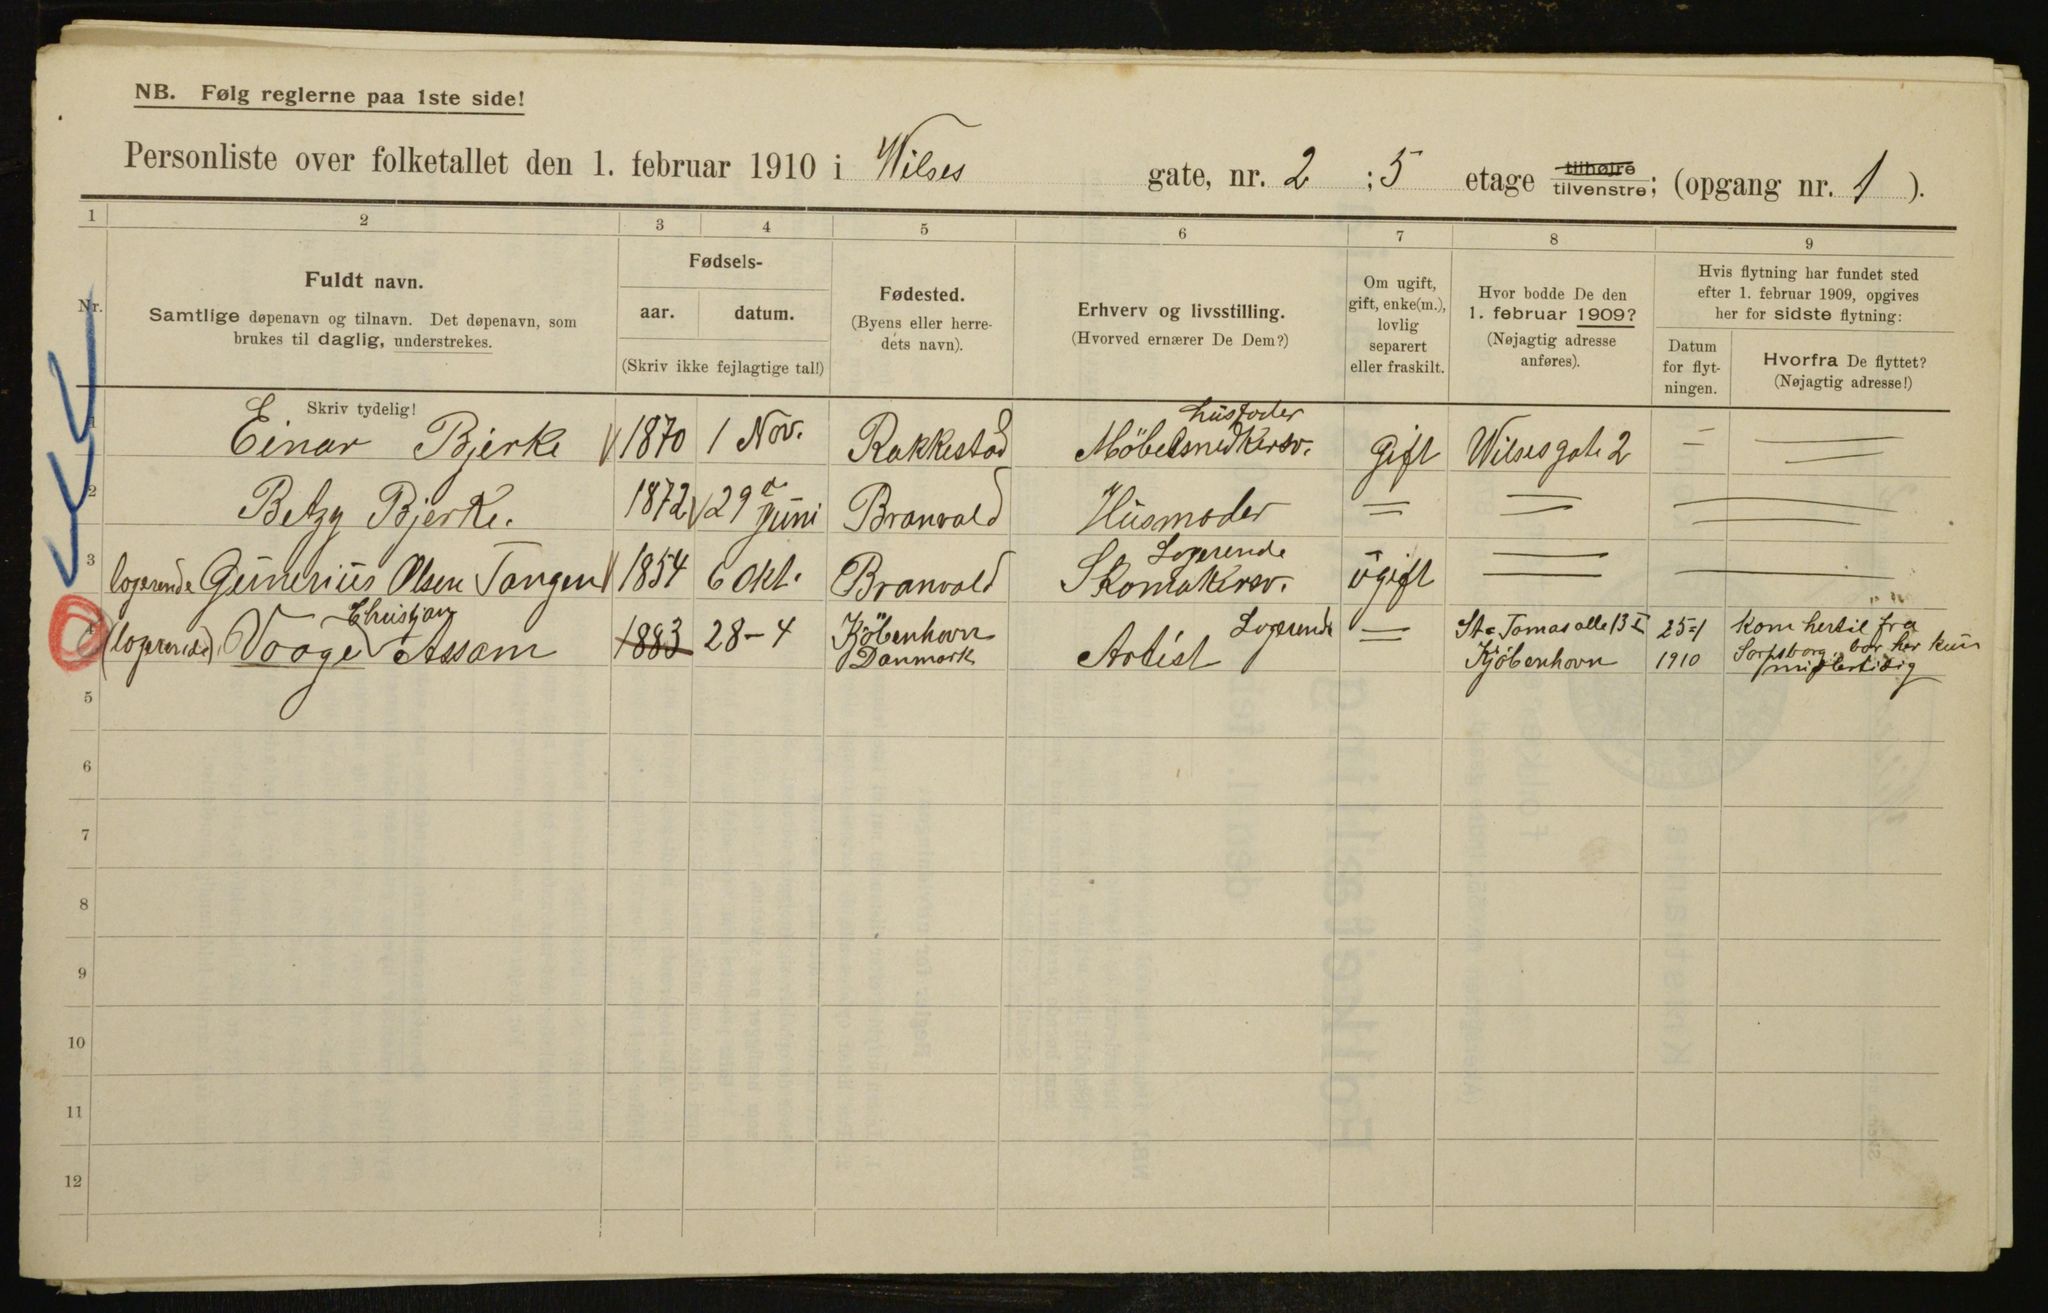 NB. Følg reglerne paa 1ste side!
Personliste over folketallet den 1. februar 1910 i Wilses gate, nr. 2 ; 5 etage tilhøjre tilvenstre; (opgang nr. 1 ).
1 2 3 4 5 6 7 8 9
Nr.
Fuldt navn.
Samtlige døpenavn og tilnavn. Det døpenavn, som
brukes til daglig, understrekes.
Fødsels-
aar. datum.
(Skriv ikke fejlagtige tal!)
Fødested.
(Byens eller herre-
dets navn).
Erhverv og livsstilling.
(Hvorved ernærer De Dem?)
Om ugift,
gift, enke(m.),
lovlig
separert
eller fraskilt.
Hvor bodde De den
1. februar 1909?
(Nøjagtig adresse
anføres).
Hvis flytning har fundet sted
efter 1. februar 1909, opgives
her for sidste flytning:
Datum
for flyt-
ningen.
Hvorfra De flyttet?
(Nøjagtig adresse!)
Skriv tydelig!
husfader
1 Einar Bjerke 1870 1 Nov. Rakkestad Møbelsnedkersv. Gift Wilsesgate 2 — =
2 Betzy Bjerke. 1872 29 d Juni Branvald Husmoder = = =
Logerende
3 logerende Gunerius Olsen Tangen 1854 6 Okt. Branvald Skomakersv. ugift = —
Christian
4 (logerende) Vooge Assam 1883 28-4 Kjöbenhavn Artist Logerende = St. Tomas alle 13 I 25-1 Kom hertil fra
Danmark Kjöbenhavn 1910 Sarpsborg, bor her kun
midlertidig
5
6
7
8
9
10
11
12